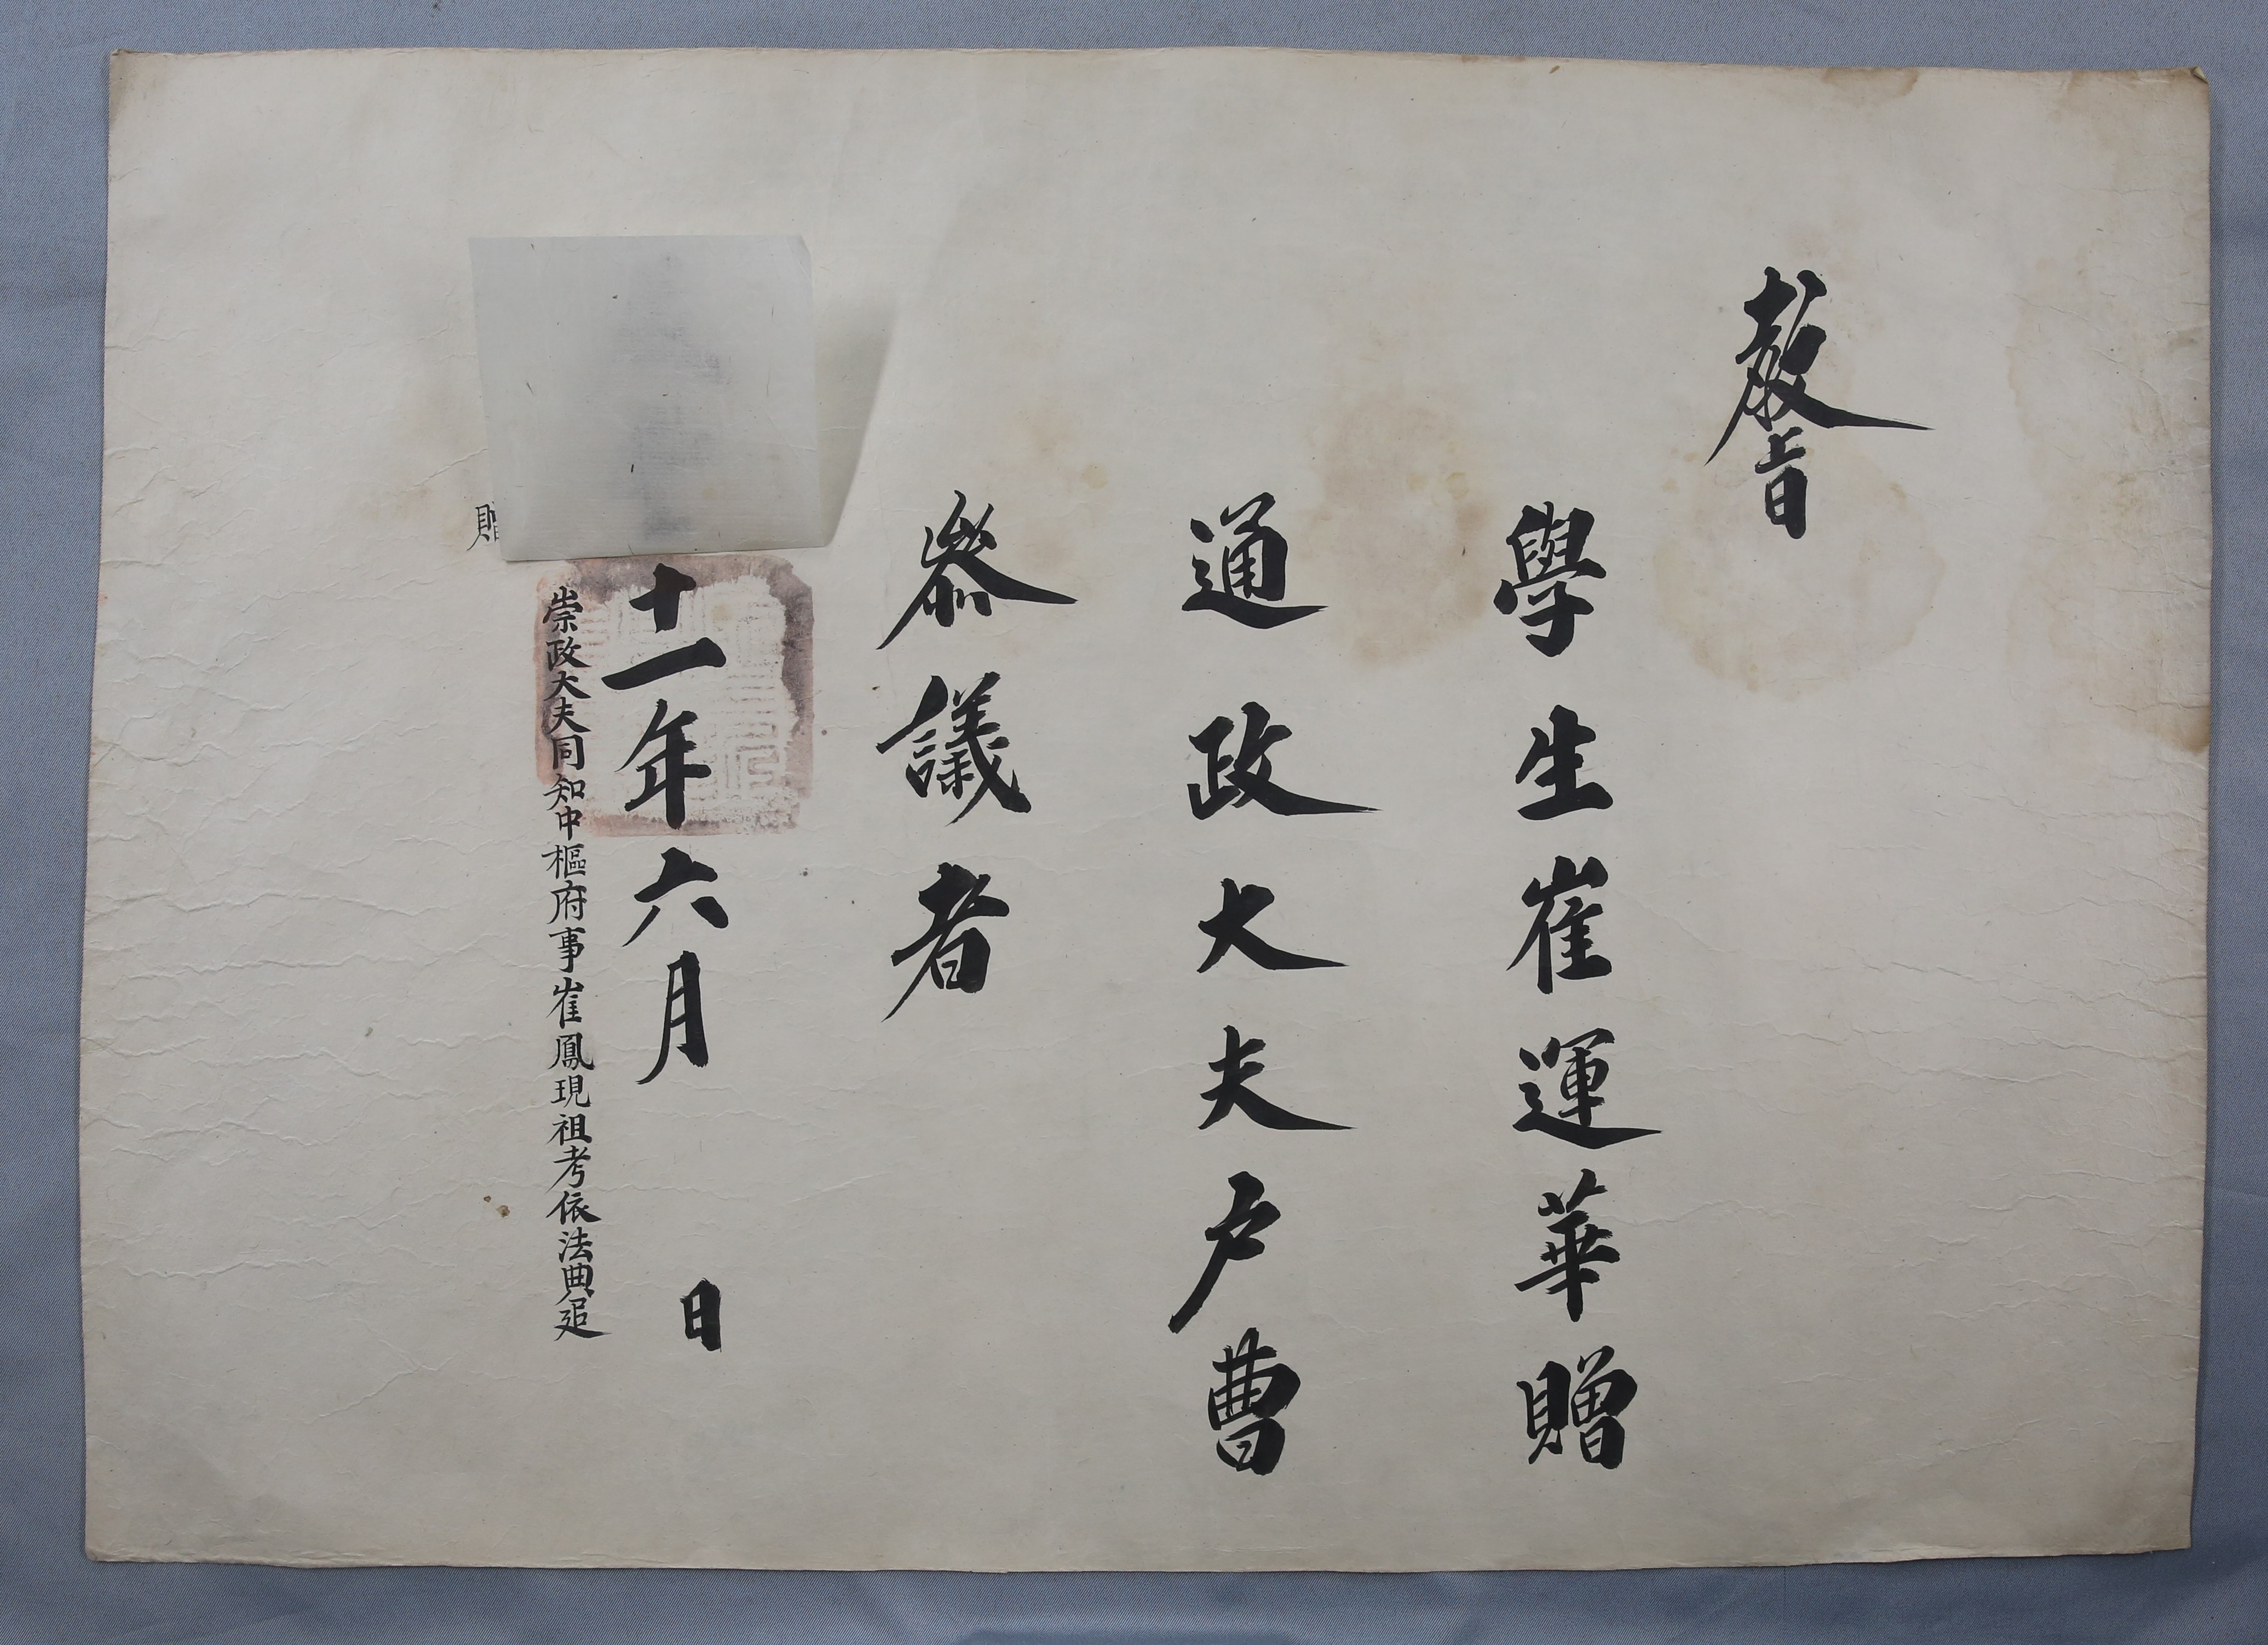 敎旨
學生崔運華贈
通政大夫戶曹
參議者
十一年六月 日
崇政大夫同知中樞府事崔鳳現祖考依法典追
贈